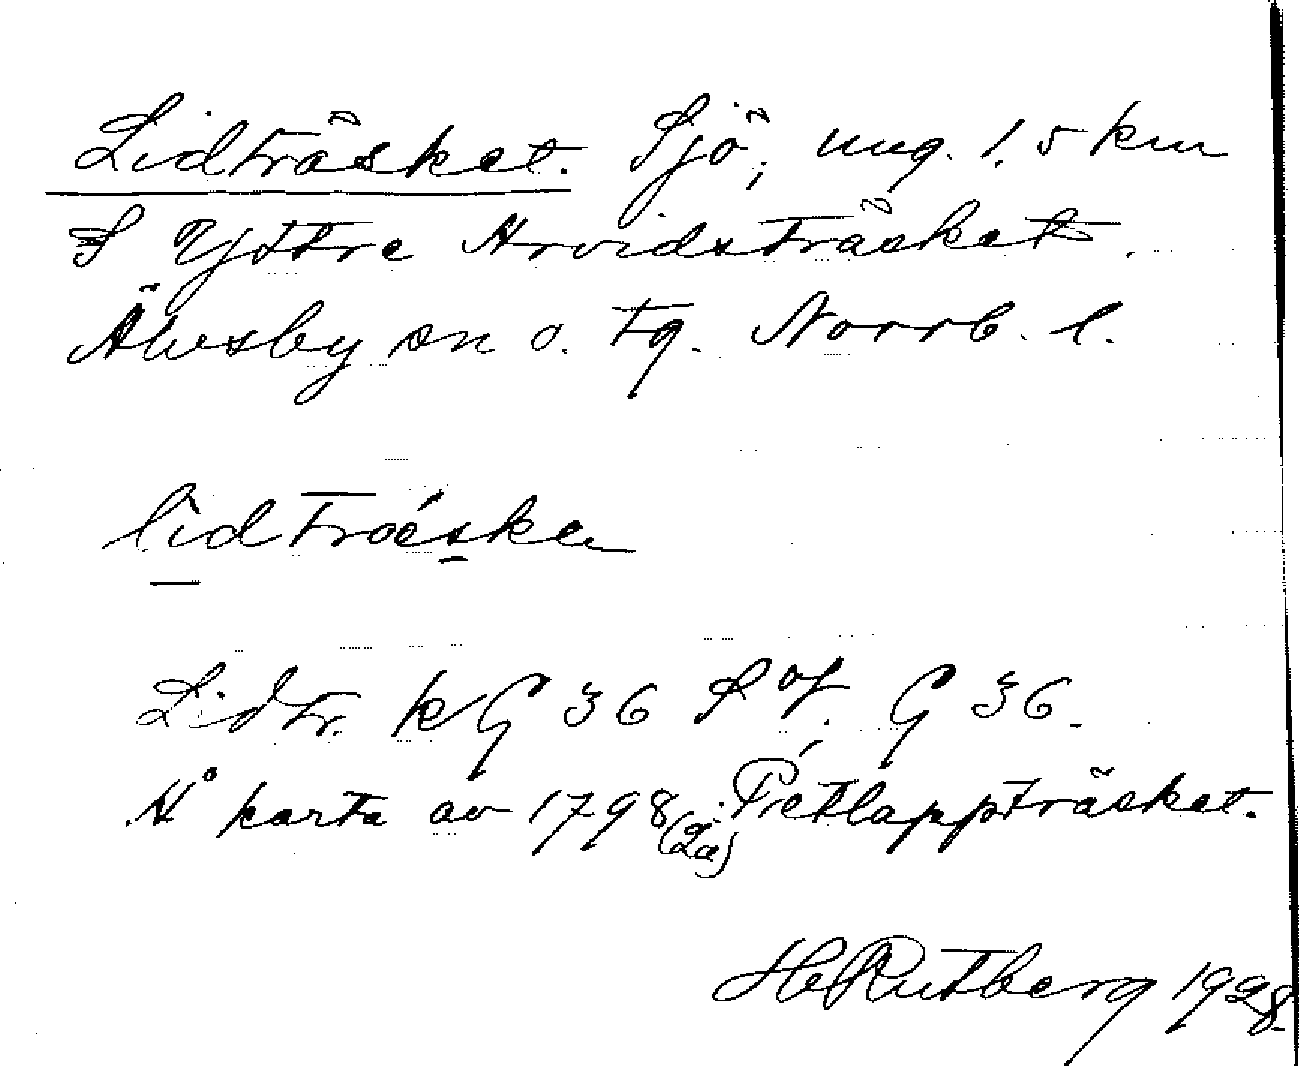 Lidträsket. Sjö, ung. 1,5 km
S Yttre Arvidsträsket.
Älvsby sn o. tg. Norrb. l.
lidtroéska
Lidtr. kG 36 S of. G 36.
Å karta av 1798 (Qa): Pietlappträsket.
H Rutberg 1928.